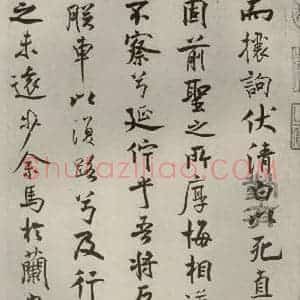 而攘訽伏清白以死直
固前聖之所厚悔相道
不察兮延佇乎吾將反
朕車以復路兮及行
之未遠步余馬於蘭